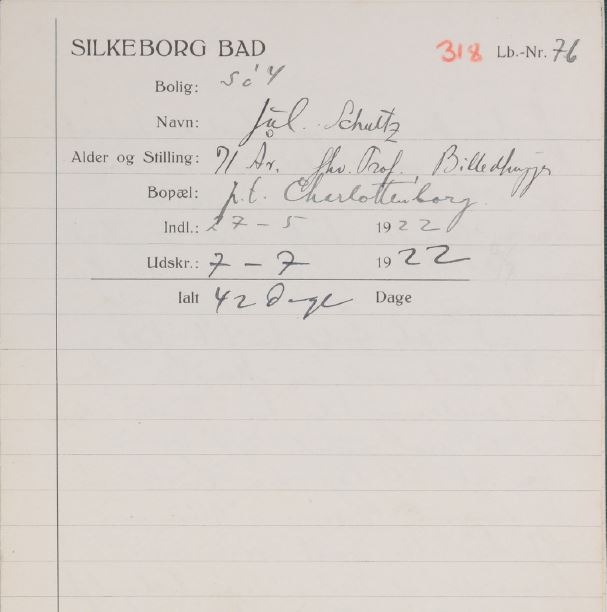 SILKEBORG BAD 318 Lb.-Nr. 76
Bolig: Sö 4
Navn: Jul. Schultz
Alder og Stilling: 71 Ar. Prof. Billedhugger
Bopæl: p.t. Charlottenborg
Indl.: 27 - 5 1922
Udskr.: 7 - 7 1922
Ialt 42 Dage Dage